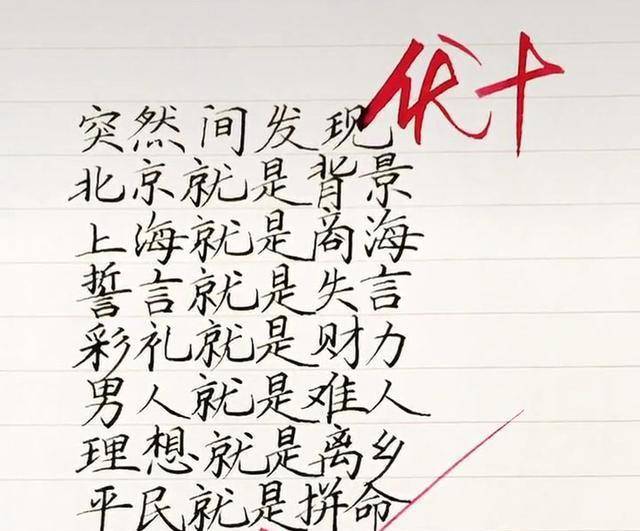 优+
突然间发现
北京就是背景
上海就是商海
誓言就是失言
彩礼就是财力
男人就是难人
理想就是离乡
平民就是拼命